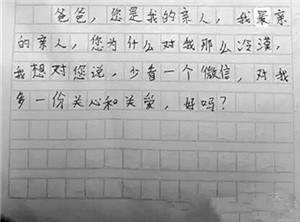 爸爸，您是我的亲人，我最亲
的亲人，您为什么对我那么冷漠，
我想对您说，少看一个微信，对我
多一份关心和关爱，好吗？